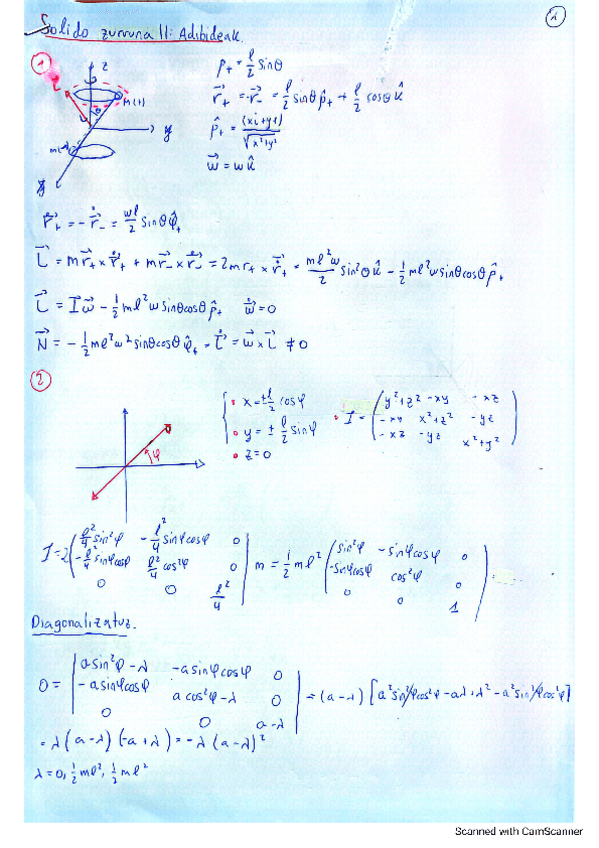 1
Solido zurruna II: Adibideak.
1
z
L
m(+)
θ
y
m(-)
x
ρ₊ = l/2 sinθ
r⃗₊ = -r⃗₋ = l/2 sinθ ρ̂₊ + l/2 cosθ k̂
ρ̂₊ = (xi+yj)/√(x²+y²)
ω⃗ = ω k̂
ṙ⃗₊ = -ṙ⃗₋ = ωl/2 sinθ φ̂₊
L⃗ = m r⃗₊ × ṙ⃗₊ + m r⃗₋ × ṙ⃗₋ = 2m r₊ × ṙ⃗₊ = ml²ω/2 sin²θ k̂ - 1/2 ml²ω sinθ cosθ ρ̂₊
L⃗ = I ω⃗ - 1/2 ml²ω sinθ cosθ ρ̂₊ ω̇⃗ = 0
N⃗ = - 1/2 ml²ω² sinθ cosθ φ̂₊ = L̇⃗ = ω⃗ × L⃗ ≠ 0
2
φ
• x = ± l/2 cosφ
• y = ± l/2 sinφ
• z = 0
• I = ( y²+z² -xy -xz
-xy x²+z² -yz
-xz -yz x²+y² )
I = 2 ( l²/4 sin²φ - l²/4 sinφcosφ 0
- l²/4 sinφcosφ l²/4 cos²φ 0
0 0 l²/4 ) m = 1/2 ml² ( sin²φ -sinφcosφ 0
-sinφcosφ cos²φ 0
0 0 1 )
Diagonalizatuz.
0 = | asin²φ-λ -asinφcosφ 0
-asinφcosφ acos²φ-λ 0
0 0 a-λ | = (a-λ) [a²sin²φcos²φ - aλ + λ² - a²sin²φcos²φ]
= λ(a-λ)(-a+λ) = -λ(a-λ)²
λ = 0, 1/2 ml², 1/2 ml²
Scanned with CamScanner